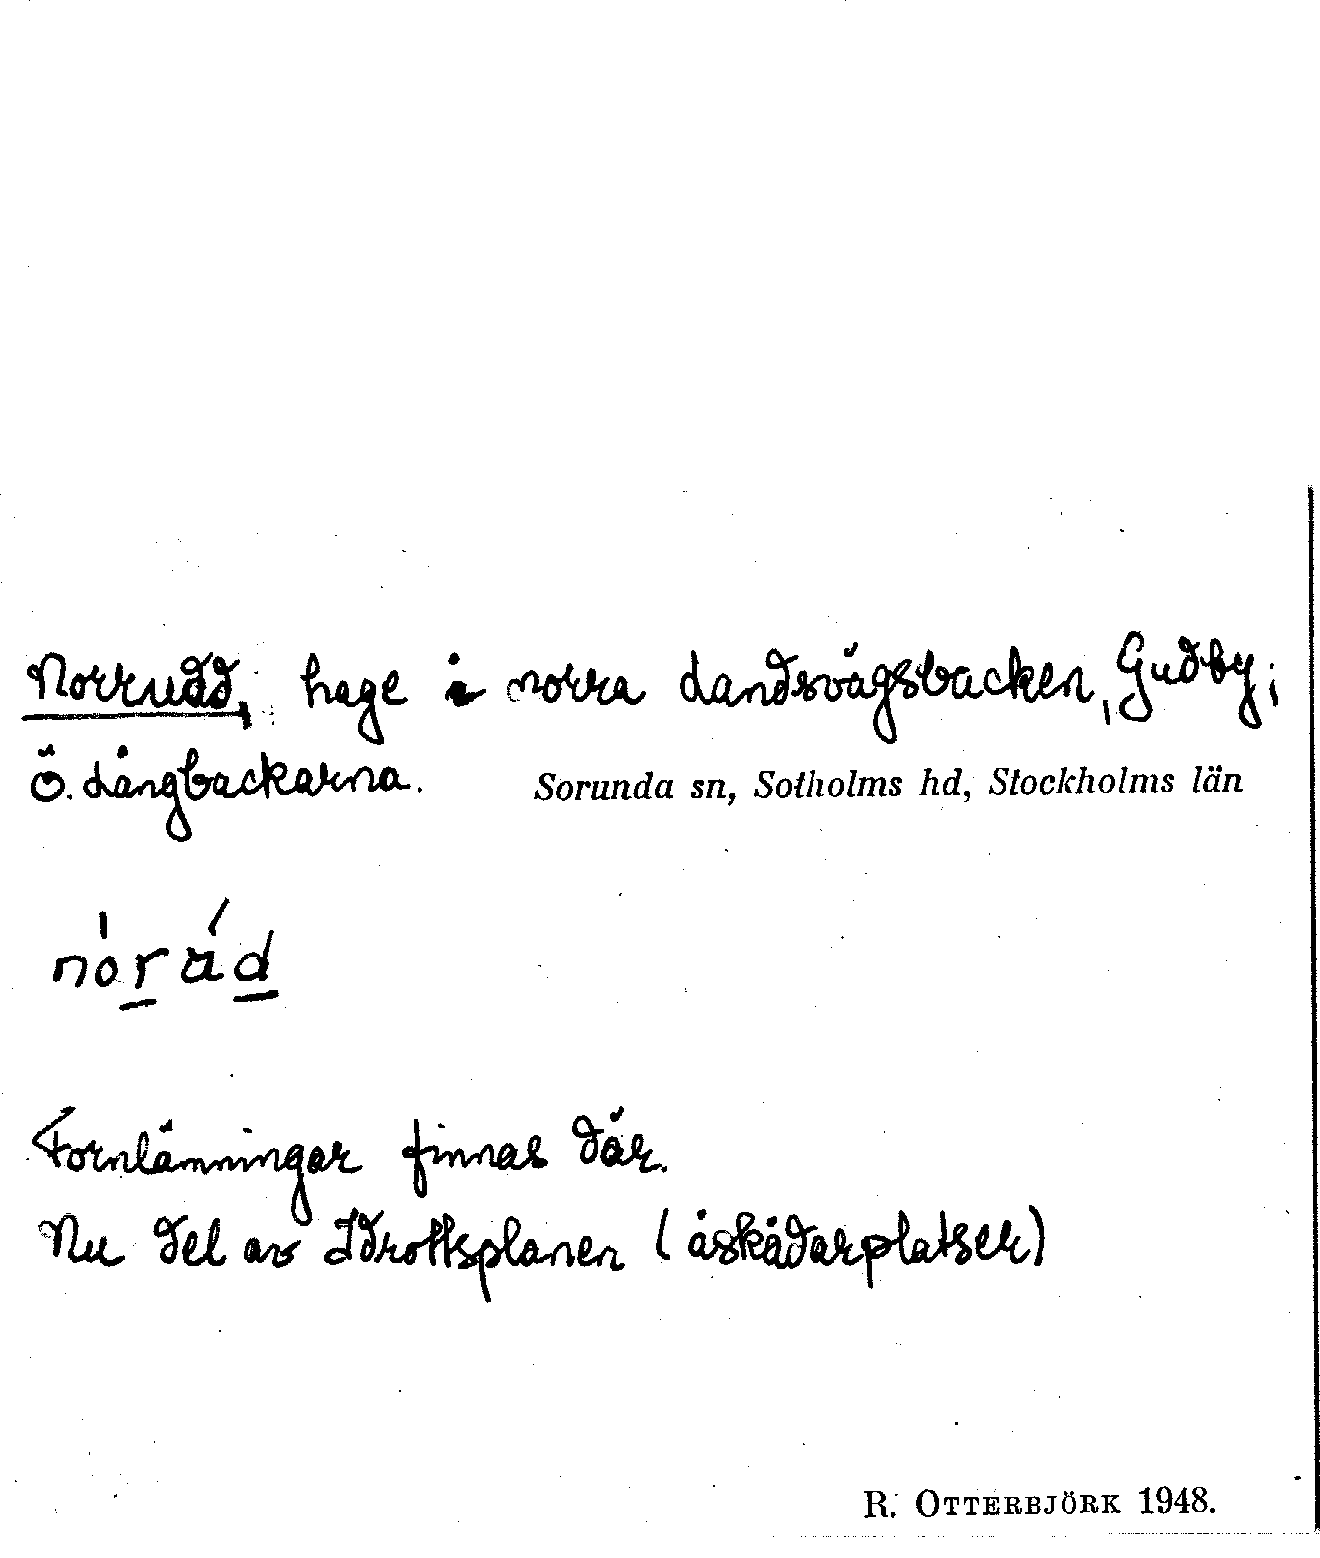 Norrudd, hage å norra Landsvägsbacken, Gudby;
Ö. Långbackarna. Sorunda sn, Sotholms hd, Stockholms län
Fornlämningar finnas där.
Nu del av Idrottsplanen (åskådarplatser)
R. OTTERBJÖRK 1948.